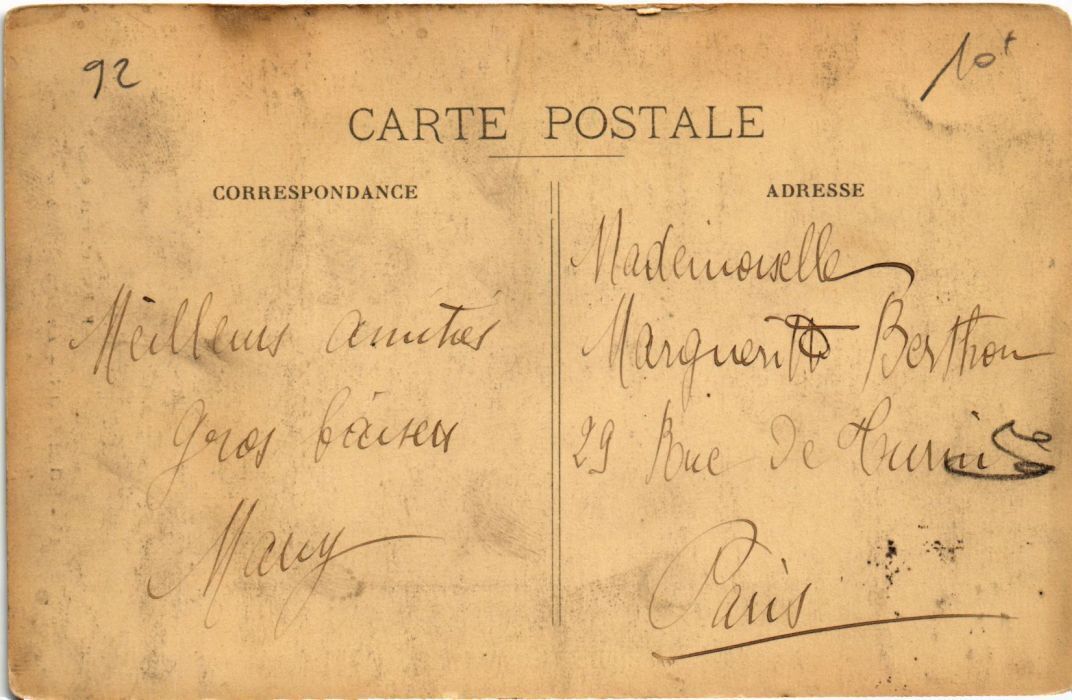 92
10
CARTE POSTALE
CORRESPONDANCE
Meilleurs amitiés
gros baisers
ADRESSE
Mademoiselle
Marguerite Berthon
29 Rue de Turin
Paris